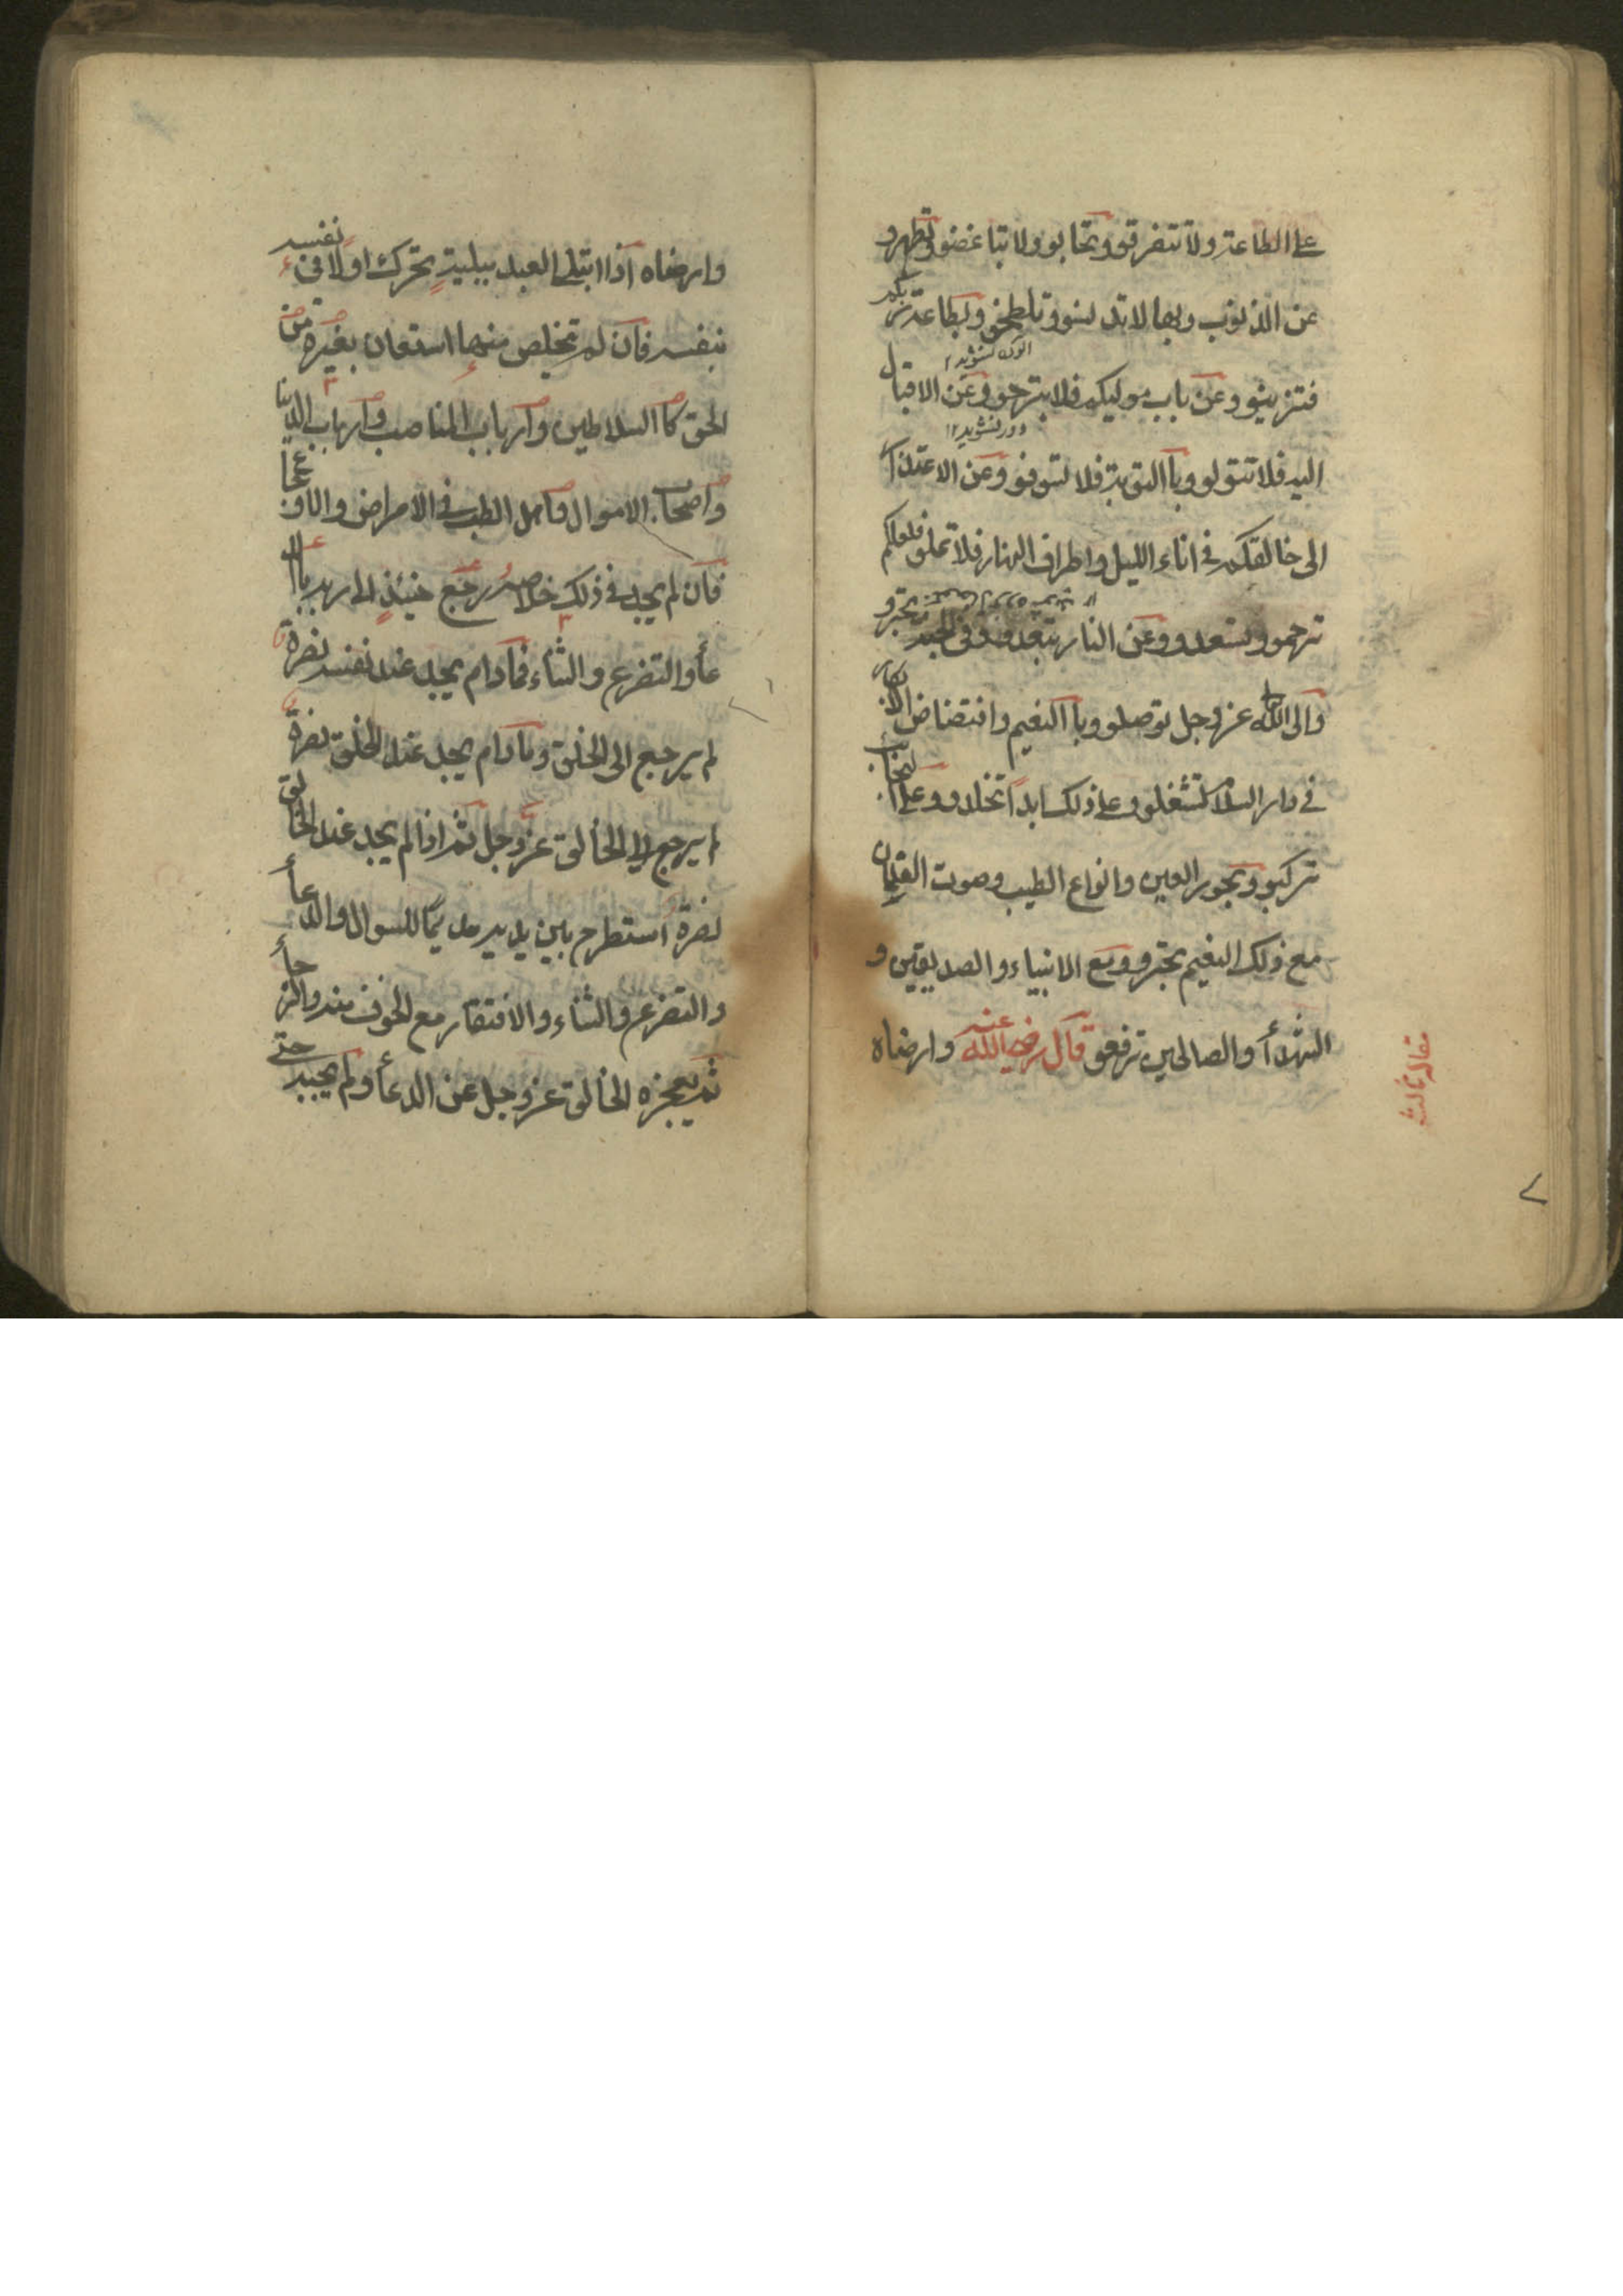 على الطاعة ولا تتفرقو وتحابو ولا تباغضو وتطهرو
عن الذنوب وبها لا تدنسو وتلطخو وبطاعة ربكم
فتزينو وعن باب موليكم فلا تبرحو وعن الاقبال
اليه فلا تتولو وبا التوبة فلا تسوفو وعن الاعتذار
الى خالقكم فى اناء الليل واطراف النهار فلا تملو فلعلكم
ترحمو وتسعدو وعن النار تبعدو وفى الجنة تحبرو
والى الله عز وجل توصلو وبا النعيم وافتضاض الابكار
فى دار السلام تشتغلو وعلى ذلك ابدا تخلدو وعلى النجائب
تركبو وبحور العين وانواع الطيب وصوت القيان
مع ذلك النعيم تحبرو ومع الانبياء والصديقين و
الشهدأ والصالحين ترفعو قال رضى الله عنه وارضاه
مقاله ثالث
٧
وارضاه اذا ابتلى العبد ببلية تحرك اولا فى نفسه
بنفسه فان لم تخلص منها استعان بغيره من
الخلق كا السلاطين وارباب المناصب وارباب الدنيا
واصحاب الاموال واهل الطب فى الامراض والاوجاع
فان لم يجد فى ذلك خلاصه رجع حينئذ الى ربه باالد
عأ والتضرع والثناء فمادام يجد عند نفسه نصرة
لم يرجع الى الخلق ومادام يجد عند الخلق نصرة
لم يرجع الى الخالق عز وجل ثم اذا لم يجد عند الخالق
نصرة استطرح بين يديه مديما للسوال والدعأ
والتضرع والثناء والافتقار مع الخوف منه والرجأ
ثم يعجزه الخالق عز وجل عن الدعأ ولم يجبه حتى